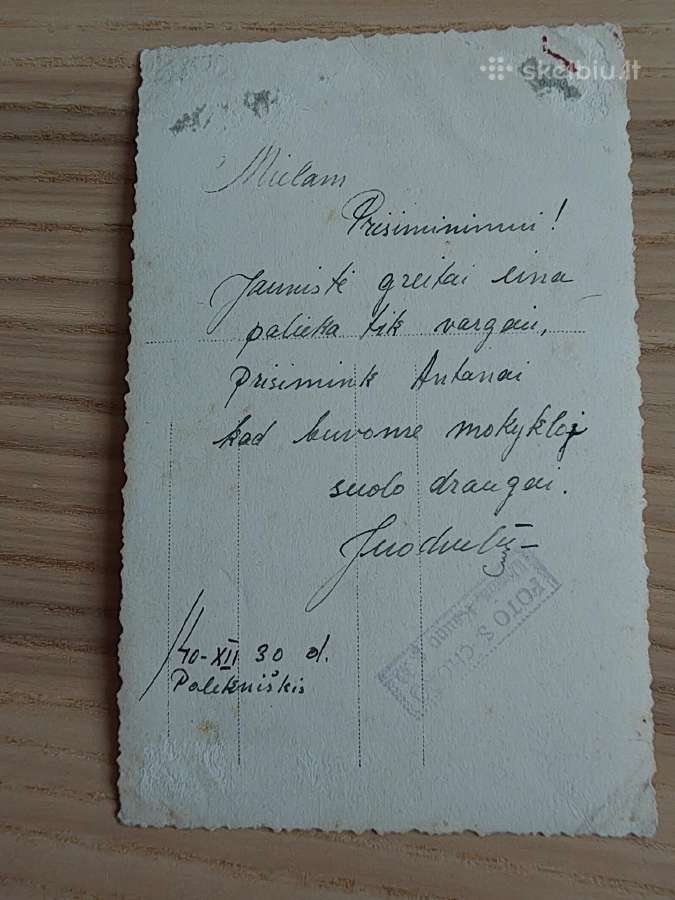 skelbiu.lt
Mielam
Prisiminimui!
Jaunistė greitai eina
palieka tik vargai,
Prisimink Antanai
kad buvome mokykloj
suolo draugai.
40-XII 30 d.
Paliekniškis
FOTO S.